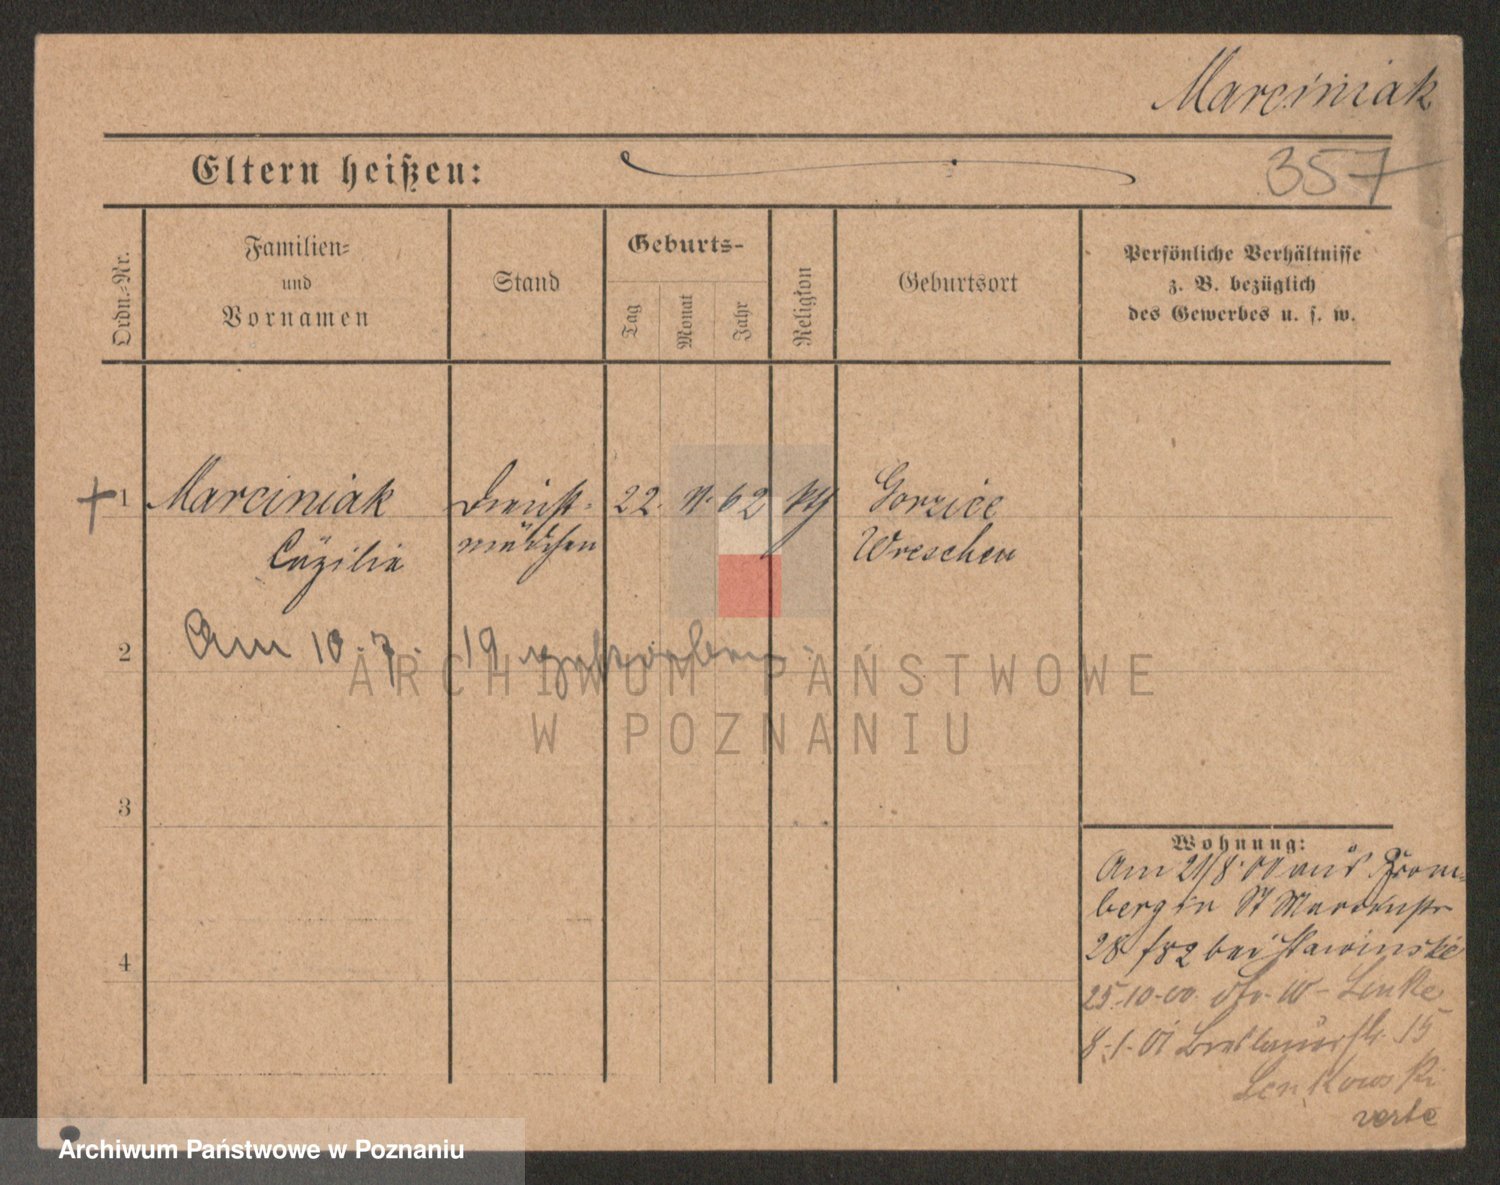 Marciniak
Eltern heißen:
357
Ordn.-Nr.
Familien-
und
Vornamen
Stand
Geburts-
Tag
Monat
Jahr
Religion
Geburtsort
Persönliche Verhältnisse
z. B. bezüglich
des Gewerbes u. s. w.
1 Marciniak Dienst- 22. 11. 62 Gorzice
Cäzilie mädchen Wreschen
2 Am 10. 7. 19 verstorben.
ARCHIWUM PAŃSTWOWE
W POZNANIU
3
Wohnung:
Am 21/8.00 aus Brom-
berg in St Martinstr
4
28 bei
25.10.00. W- Linke
8.1.01 Breslauerstr. 15
Lenkowski
verte
Archiwum Państwowe w Poznaniu